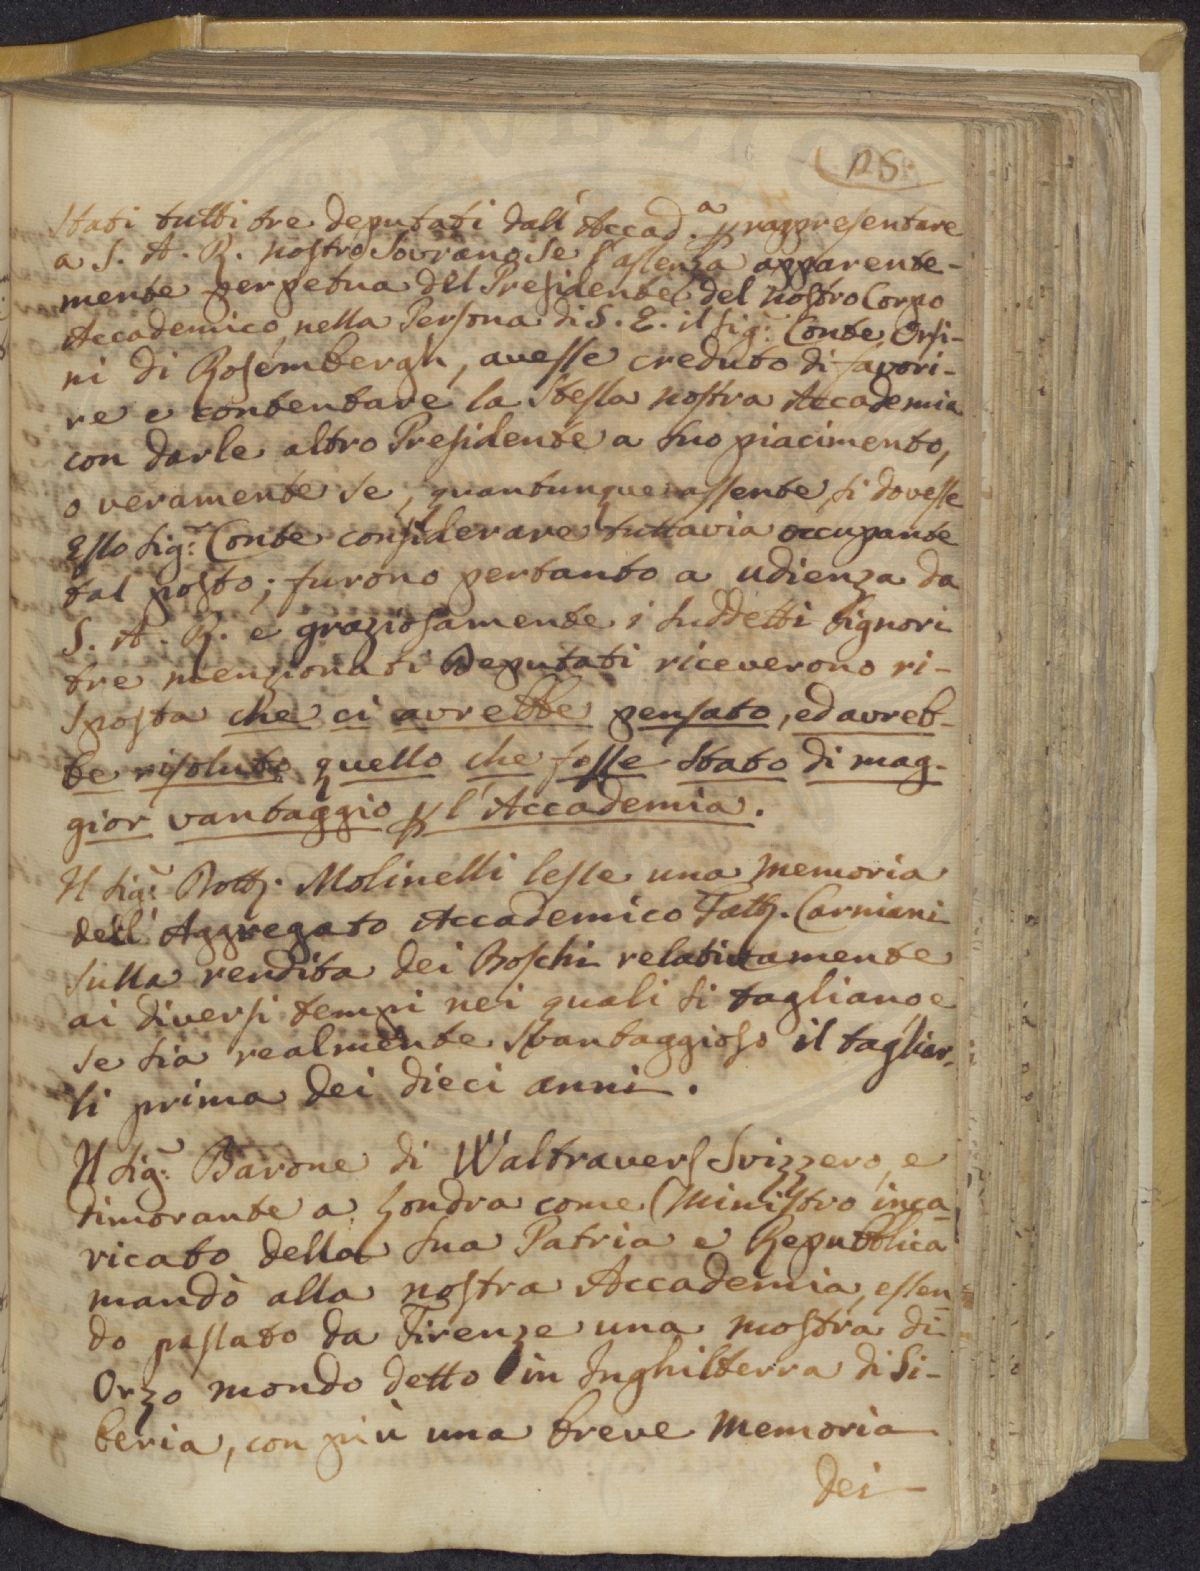 125
Stati tutti tre deputati dall'Accad.a p rappresentare
a S. A. R. nostro Sovrano se l'assenza apparente-
mente perpetua del Presidente del nostro Corpo
Accademico nella Persona di S. E. il Sig.r Conte Orsi-
ni di Rosembergh, avesse creduto di favori-
re e contentare la Stessa nostra Accademia
con darle altro Presidente a suo piacimento,
o veramente se, quantunque assente si dovesse
Esso Sig.r Conte considerare tuttavia occupante
tal posto; furono pertanto a udienza da
S. A. R. e graziosamente i suddetti Signori
tre menzionati Deputati riceverono ri-
sposta che ci avrebbe pensato, ed avreb-
be risoluto quello che fosse stato di mag-
gior vantaggio p l'Accademia.
Il Sig.r Molinelli lesse una memoria
dell'Aggregato Accademico Carniani
sulla rendita dei Boschi relativamente
ai diversi tempi nei quali si tagliano e
se sia realmente svantaggioso il tagliar-
li prima dei dieci anni.
Il Sig.r Barone di Waltravers Svizzero, e
dimorante a Londra come Ministro inca-
ricato della sua Patria e Repubblica
mandò alla nostra Accademia, essen-
do passato da Firenze una mostra di
Orzo mondo detto in Inghilterra di Si-
beria, con più una breve memoria
dei